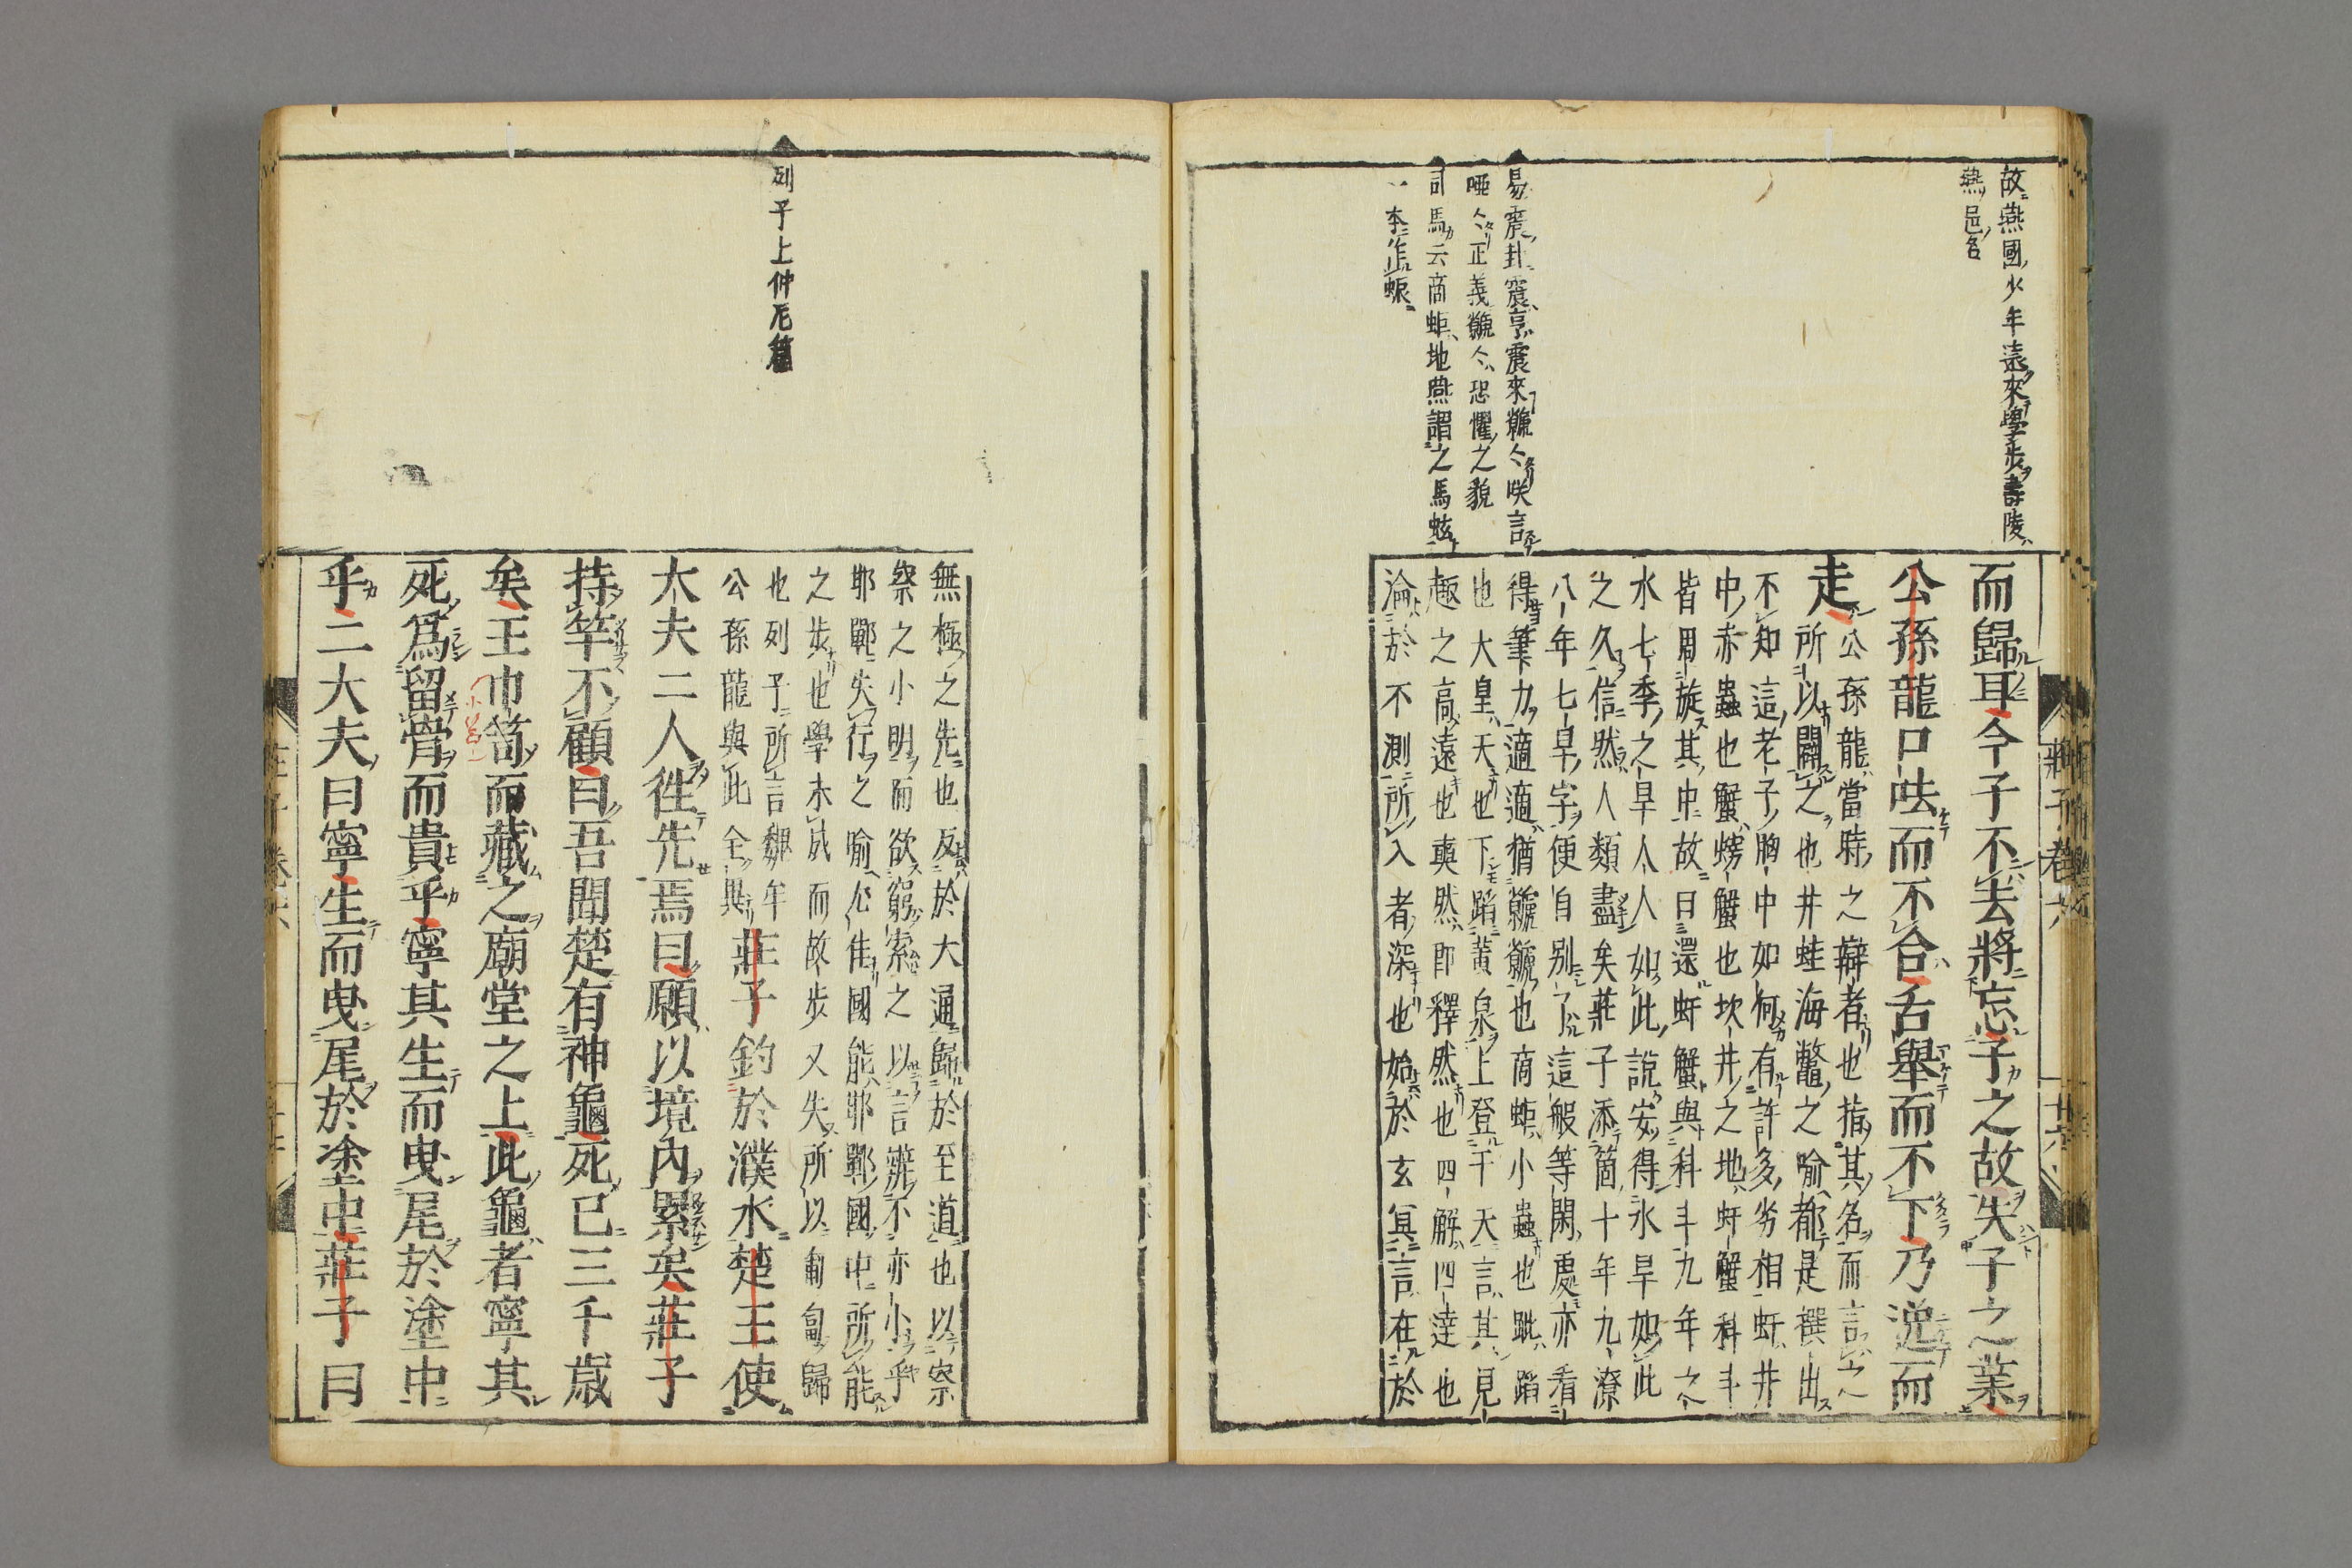 故燕國少年遠來學步壽陵
燕邑名
而歸耳今子不去將忘子之故失子之業
公孫龍口呿而不合舌舉而不下乃逸而
走
公孫龍當時之辯者也指其名而言之
所以闢之也井蛙海鼈之喻都是撰出
不知這老子胸中如何有許多劣相虷井
中赤蟲也蟹螃蟹也坎井之地虷蟹科斗
皆周旋其中故曰還虷蟹與科斗九年之
水七季之旱人人如此說安得水旱如此
之久信然人類盡矣莊子添箇十年九潦
八年七旱字便自別了這般等閑處亦看
得筆力適適猶虩虩也商蚷小蟲也跐蹈
也大皇天也下蹈黃泉上登于天言其見
趣之高遠也奭然即釋然也四解四達也
淪於不測所入者深也始於玄冥言在於
易震卦震亨震來虩々咲言
啞々正義虩々恐懼之貌
司馬云商蚷地燕謂之馬蚿
一本作蚷
莊子卷六
廿六
列子上仲尼篇
無極之先也反於大通歸於至道也以察
察之小明而欲窮索之以言辨不亦小乎
邯鄲失行之喻尤佳國能邯鄲國中所能
之步也學未成而故步又失所以匍匐歸
也列子所言魏牟
公孫龍與此全異
莊子釣於濮水楚王使
大夫二人徃先焉曰願以境內累矣莊子
持竿不顧曰吾聞楚有神龜死已三千歲
矣王巾笥而藏之廟堂之上此龜者寧其
死爲留骨而貴乎寧其生而曳尾於塗中
乎二大夫曰寧生而曳尾於塗中莊子曰
莊子卷六